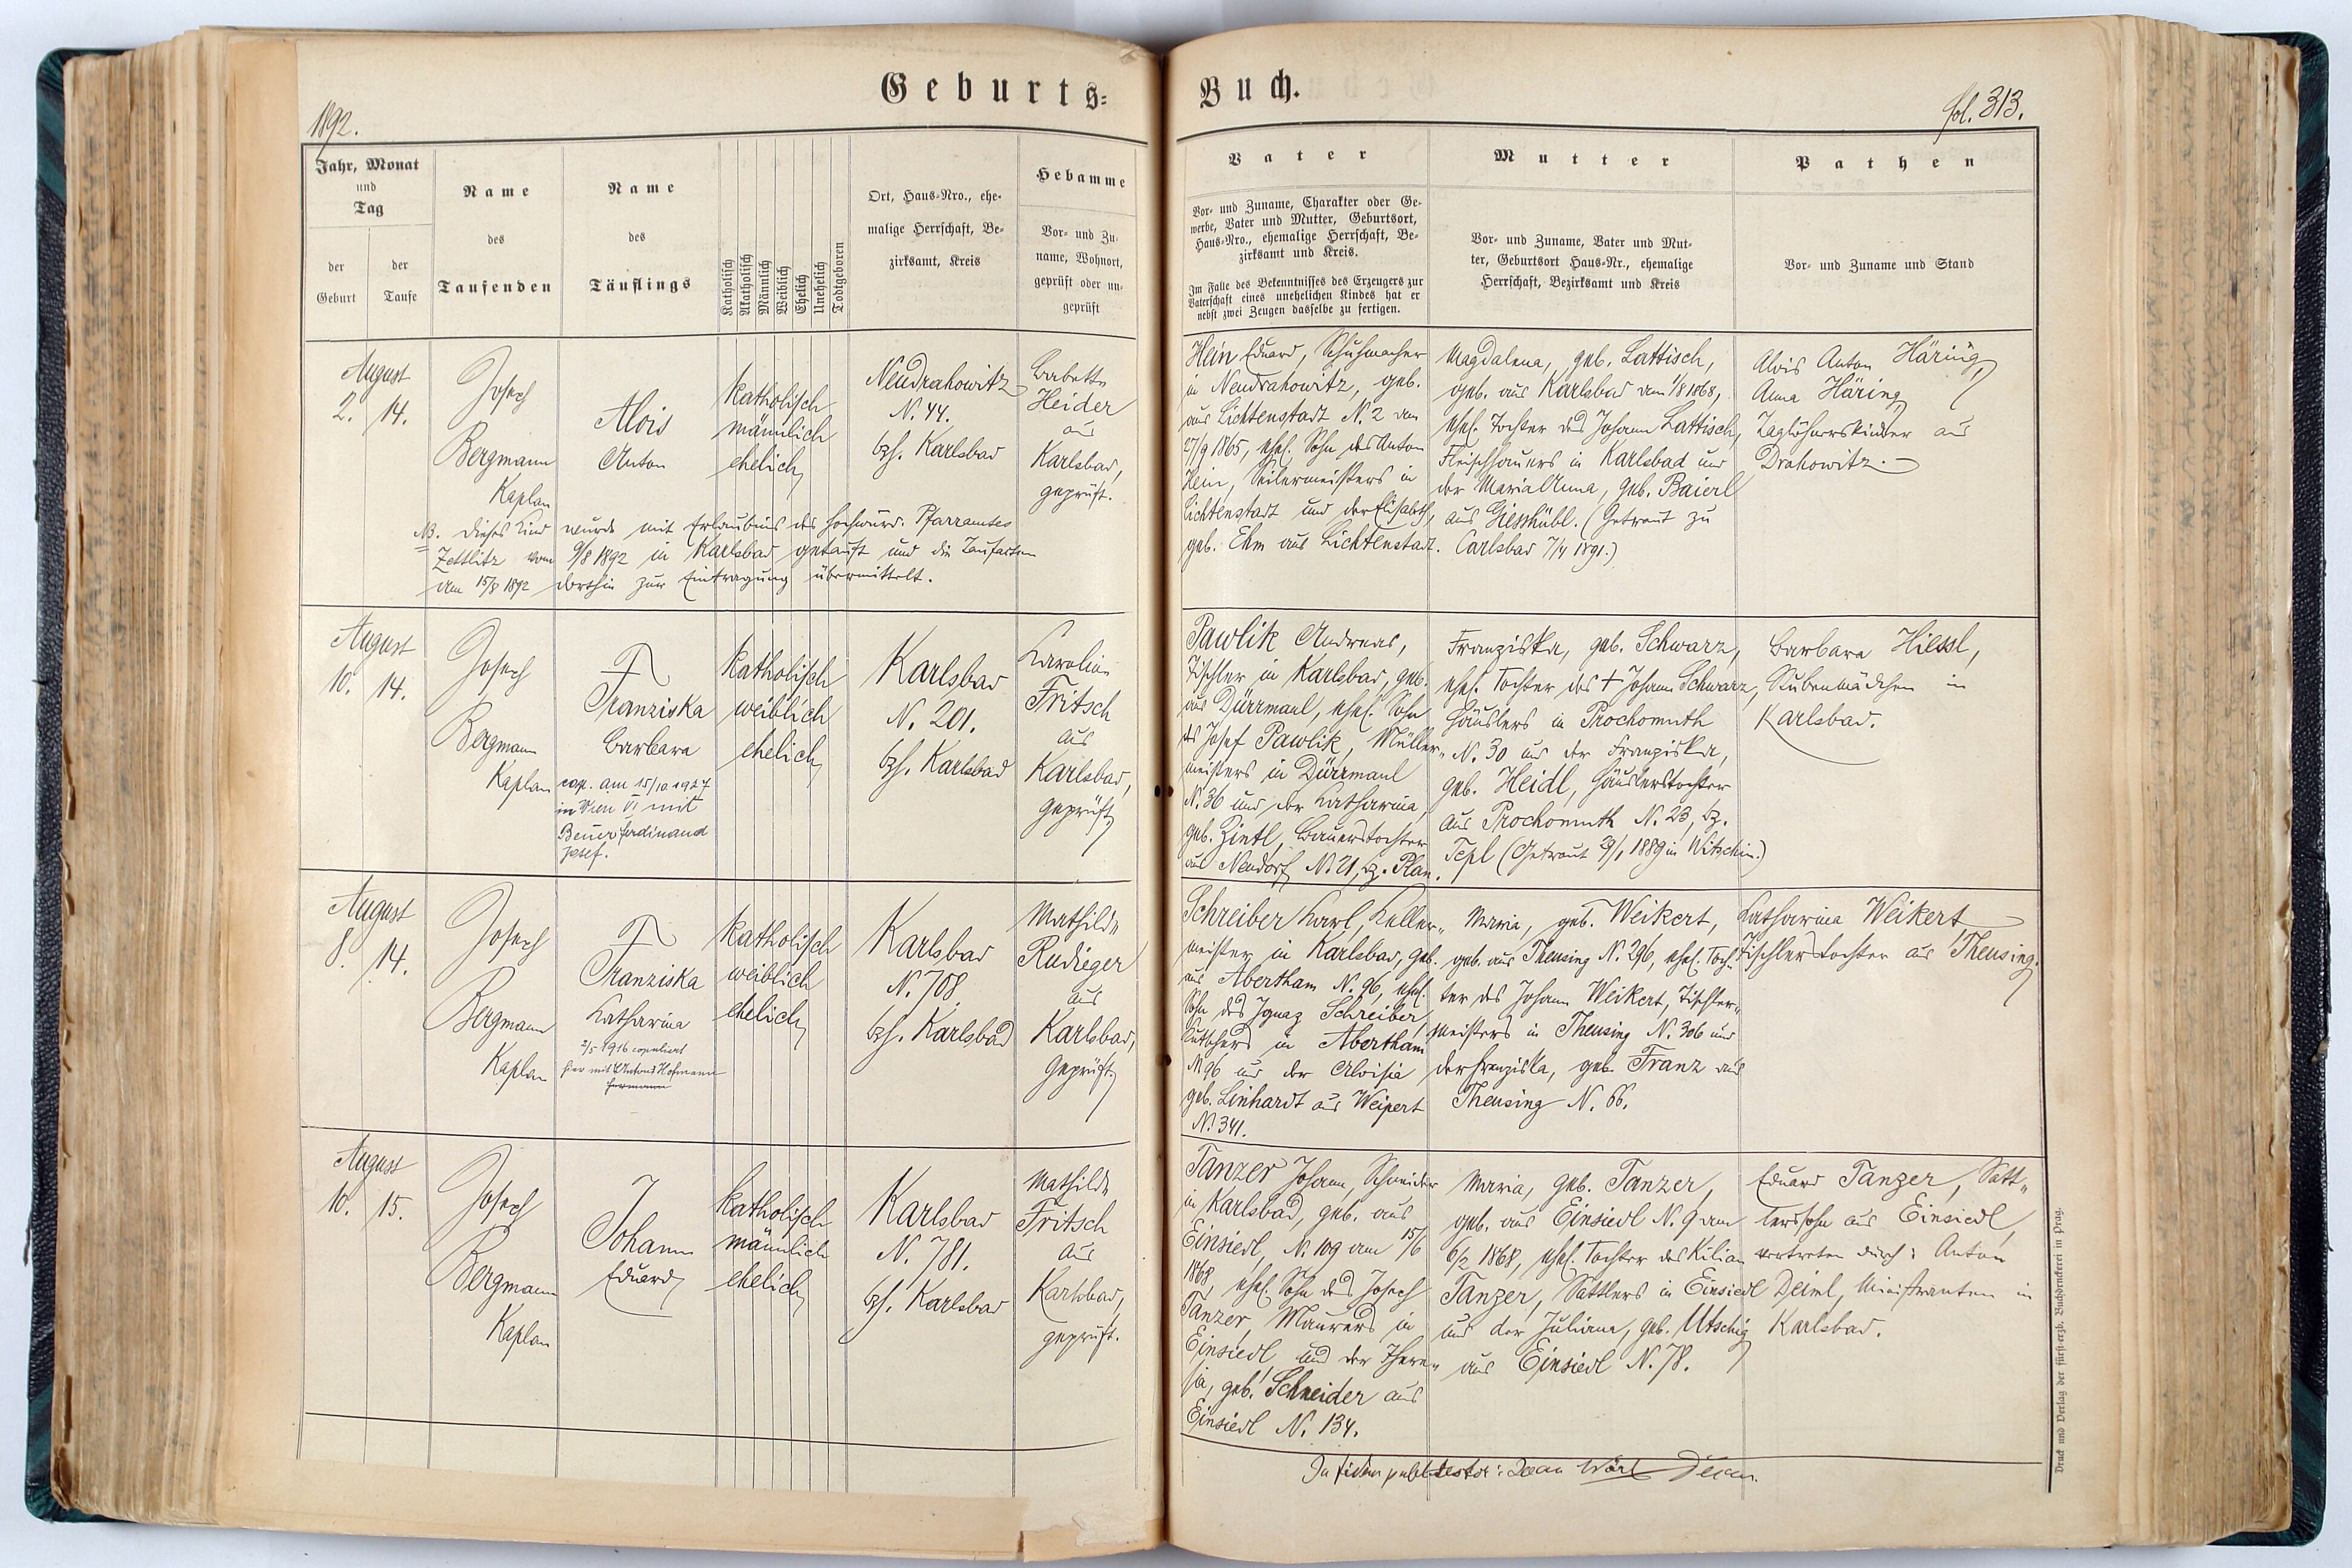 Geburts=
1892.
Jahr, Monat
und
Tag
der
Geburt
der
Taufe
Name
des
Taufenden
Name
des
Täuflings
Katholisch
Akatholisch
Männlich
Weiblich
Ehelich
Unehelich
Todtgeboren
Ort, Haus=Nro., ehe=
malige Herrschaft, Be=
zirksamt, Kreis
Hebamme
Vor= und Zu=
name, Wohnort,
geprüft oder un=
geprüft
August
2. 14.
Josef
Bergmann
Kaplan
Alois
Anton
katholisch
männlich
ehelich
Neudrahowitz
N. 44.
bzh. Karlsbad
Babette
Heider
aus
Karlsbad,
geprüft.
NB. Dieses Kind wurde mit Erlaubnis des hochwürd. Pfarramtes
Zettlitz vom 9/8 1892 in Karlsbad getauft und die Taufakten
am 15/8 1892 dorthin zur Eintragung übermittelt.
August
10. 14.
Josef
Bergmann
Kaplan
Franziska
Barbara
cop. am 15/10 1927
in Wien VI mit
Beuer Ferdinand
Josef.
katholisch
weiblich
ehelich
Karlsbad
N. 201.
bzh. Karlsbad
Karolin
Fritsch
aus
Karlsbad,
geprüft
August
8. 14.
Josef
Bergmann
Kaplan
Franziska
Katharina
2/5 1916 copuliert
hier mit Anton Hofmann
katholisch
weiblich
ehelich
Karlsbad
N. 708.
bzh. Karlsbad
Mathilde
Rudieger
aus
Karlsbad,
geprüft
August
10. 15.
Josef
Bergmann
Kaplan
Johann
Eduard
katholisch
männlich
ehelich
Karlsbad
N. 781.
bzh. Karlsbad
Mathilde
Fritsch
aus
Karlsbad,
geprüft.
Buch.
fol. 313.
Vater
Vor= und Zuname, Charakter oder Ge=
werbe, Vater und Mutter, Geburtsort,
Haus=Nro., ehemalige Herrschaft, Be=
zirksamt und Kreis.
Im Falle des Bekenntnisses des Erzeugers zur
Vaterschaft eines unehelichen Kindes hat er
nebst zwei Zeugen dasselbe zu fertigen.
Mutter
Vor= und Zuname, Vater und Mut=
ter, Geburtsort Haus=Nr., ehemalige
Herrschaft, Bezirksamt und Kreis
Pathen
Vor= und Zuname und Stand
Hein Eduard, Schuhmacher
in Neudrahowitz, geb.
aus Lichtenstadt N. 2 am
27/9 1865, ehel. Sohn des Anton
Hein, Seilermeisters in
Lichtenstadt und der Elisabeth,
geb. Ehm aus Lichtenstadt.
Magdalena, geb. Lattisch,
geb. aus Karlsbad am 1/8 1868,
ehel. Tochter des Johann Lattisch,
Fleischhauers in Karlsbad und
der Maria Anna, geb. Baierl
aus Giesshübl. (Getraut zu
Carlsbad 7/4 1891.)
Alois Anton Häring,
Anna Häring,
Taglöhnerskinder aus
Drahowitz.
Pawlik Andreas,
Tischler in Karlsbad, geb.
aus Dürrmaul, ehel. Sohn
des Josef Pawlik, Müller„
meisters in Dürrmaul
N. 36 und der Katharina,
geb. Zintl, Bauerstochter
aus Neudorf N. 21, bz. Plan.
Franziska, geb. Schwarz,
ehel. Tochter des † Johann Schwarz,
Häuslers in Prochomuth
N. 30 und der Franziska,
geb. Heidl, Häuslerstochter
aus Prochomuth N. 23, bz.
Tepl (Getraut 29/1 1889 in Witschin.)
Barbara Hiessl,
Stubenmädchen in
Karlsbad.
Schreiber Karl, Keller„
meister in Karlsbad, geb.
aus Abertham N. 96, ehel.
Sohn des Ignaz Schreiber,
Kutschers in Abertham
N. 96 und der Aloisia
geb. Linhardt aus Weipert
N. 341.
Maria, geb. Weikert,
geb. aus Theusing N. 296, ehel. Toch„
ter des Johann Weikert, Tischler„
meisters in Theusing N. 306 und
der Franziska, geb. Franz aus
Theusing N. 66.
Katharina Weikert
Tischlerstochter aus Theusing.
Tanzer Johann, Schneider
in Karlsbad, geb. aus
Einsiedl, N. 109 am 15/6
1868, ehel. Sohn des Josef
Tanzer, Maurers in
Einsiedl und der There„
sia, geb. Schneider aus
Einsiedl N. 134.
Maria, geb. Tanzer,
geb. aus Einsiedl N. 9 am
6/2 1868, ehel. Tochter des Kilian
Tanzer, Sattlers in Einsiedl
und der Juliana, geb. Utschig
aus Einsiedl N. 78.
Eduard Tanzer, Satt„
lerssohn aus Einsiedl,
vertreten durch: Anton
Deiml, Ministranten in
Karlsbad.
Druck und Verlag der fürst=erzb. Buchdruckerei in Prag.